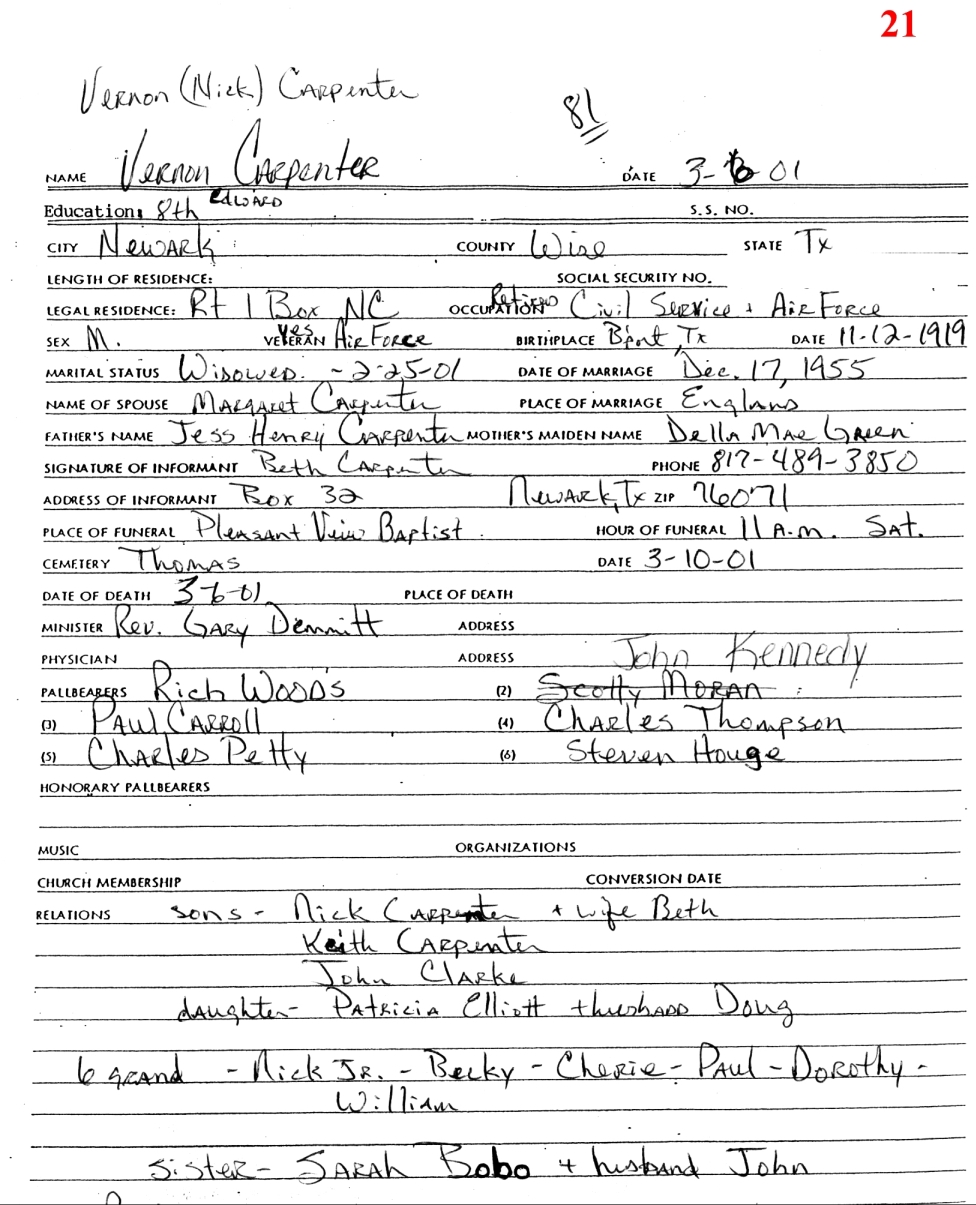 21
Vernon (Nick) Carpenter
81
NAME Vernon Carpenter DATE 3-6-01
Education: 8th Edward S.S. NO.
CITY Newark COUNTY Wise STATE Tx
LENGTH OF RESIDENCE: SOCIAL SECURITY NO.
LEGAL RESIDENCE: Rt 1 Box NC OCCUPATION Retired Civil Service + Air Force
SEX M. VETERAN Yes Air Force BIRTHPLACE Bport, Tx DATE 11-12-1919
MARITAL STATUS Widowed. - 2-25-01 DATE OF MARRIAGE Dec. 17, 1955
NAME OF SPOUSE Margaret Carpenter PLACE OF MARRIAGE England
FATHER'S NAME Jess Henry Carpenter MOTHER'S MAIDEN NAME Della Mae Green
SIGNATURE OF INFORMANT Beth Carpenter PHONE 817-489-3850
ADDRESS OF INFORMANT Box 32 Newark, Tx ZIP 76071
PLACE OF FUNERAL Pleasant View Baptist HOUR OF FUNERAL 11 A.M. Sat.
CEMETERY Thomas DATE 3-10-01
DATE OF DEATH 3-6-01 PLACE OF DEATH
MINISTER Rev. Gary Demmitt ADDRESS
PHYSICIAN ADDRESS John Kennedy
PALLBEARERS Rich Woods (2) Scotty Moran
(3) Paul Carroll (4) Charles Thompson
(5) Charles Petty (6) Steven Houge
HONORARY PALLBEARERS
MUSIC ORGANIZATIONS
CHURCH MEMBERSHIP CONVERSION DATE
RELATIONS sons - Nick Carpenter + wife Beth
Keith Carpenter
John Clarke
daughter - Patricia Elliott + husband Doug
6 grand - Nick Jr. - Becky - Cherie - Paul - Dorothy -
William
Sister - Sarah Bobo + husband John